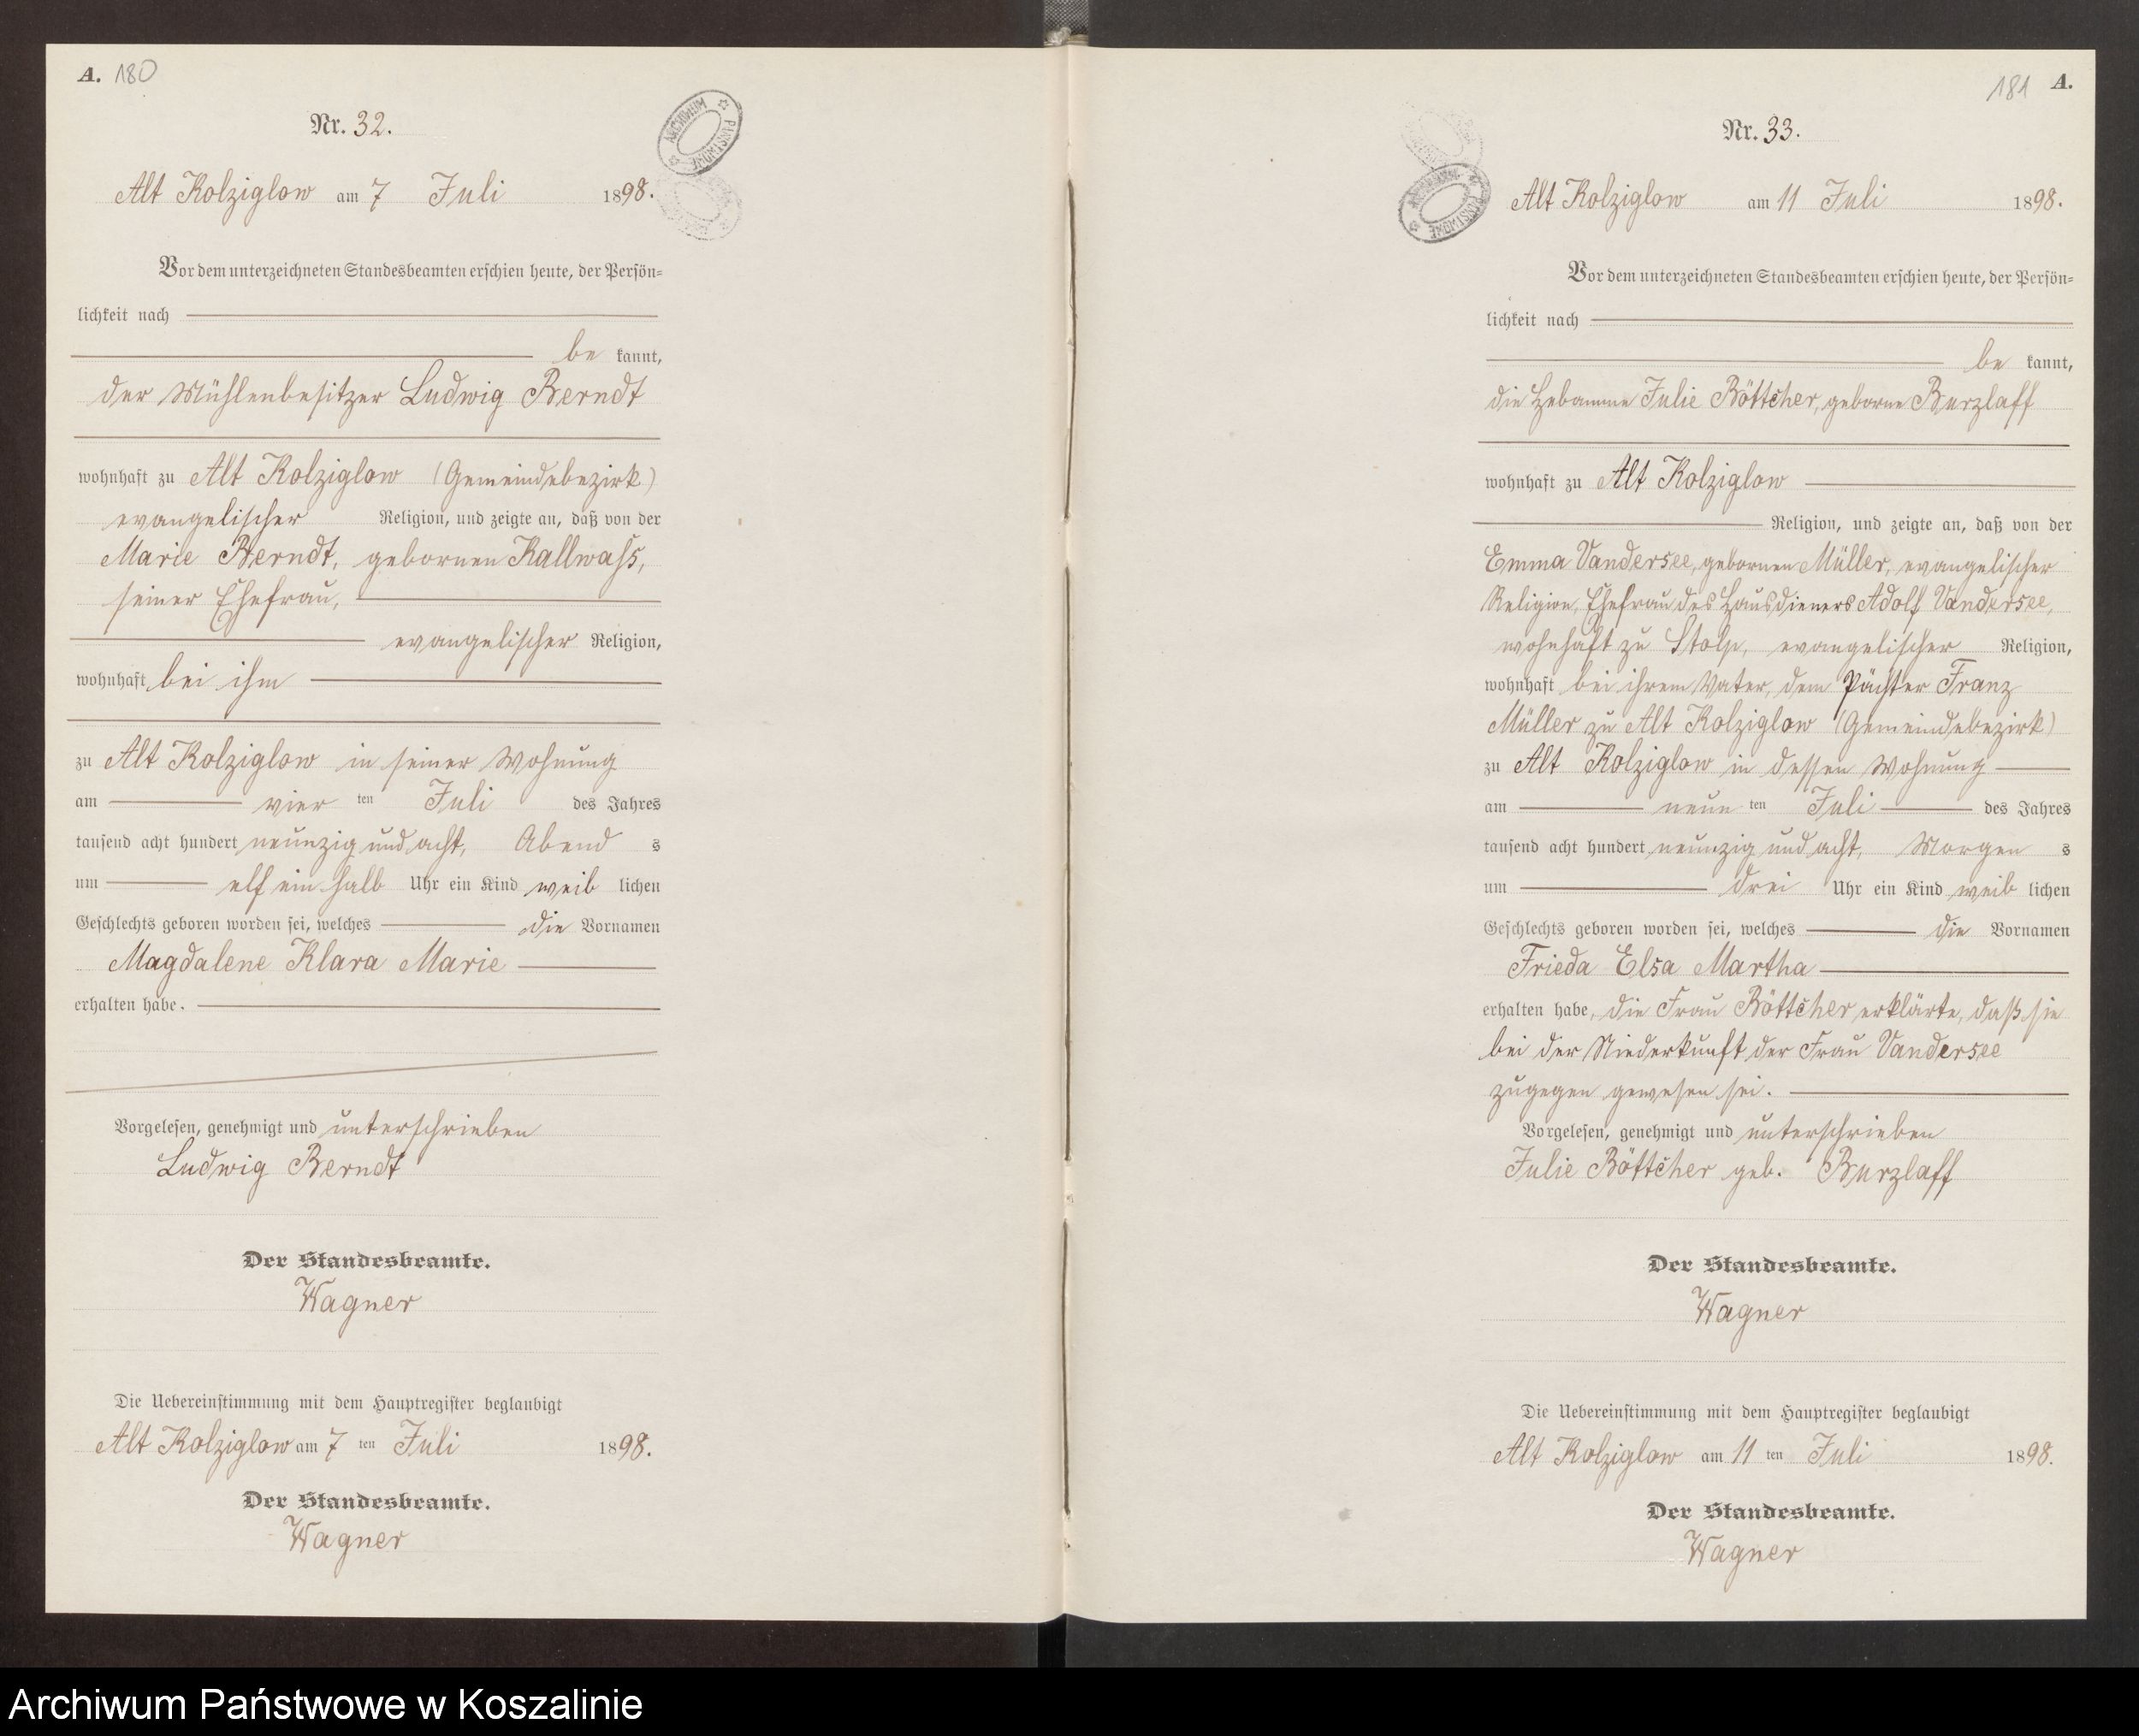 A. 180
Nr. 32.
ARCHIWUM PAŃSTWOWE
Alt Kolziglow am 7 Juli 1898.
Vor dem unterzeichneten Standesbeamten erschien heute, der Persön-
lichkeit nach
be kannt,
der Mühlenbesitzer Ludwig Berndt
wohnhaft zu Alt Kolziglow (Gemeindebezirk)
evangelischer Religion, und zeigte an, daß von der
Marie Berndt, gebornen Kallwass,
seiner Ehefrau,
evangelischer Religion,
wohnhaft bei ihm
zu Alt Kolziglow in seiner Wohnung
am vier ten Juli des Jahres
tausend acht hundert neunzig und acht, Abend s
um elf ein halb Uhr ein Kind weib lichen
Geschlechts geboren worden sei, welches die Vornamen
Magdalene Klara Marie
erhalten habe.
Vorgelesen, genehmigt und unterschrieben
Ludwig Berndt
Der Standesbeamte.
Wagner
Die Uebereinstimmung mit dem Hauptregister beglaubigt
Alt Kolziglow am 7 ten Juli 1898.
Der Standesbeamte.
Wagner
181 A.
Nr. 33.
ARCHIWUM PAŃSTWOWE
Alt Kolziglow am 11 Juli 1898.
Vor dem unterzeichneten Standesbeamten erschien heute, der Persön-
lichkeit nach
be kannt,
die Hebamme Julie Böttcher, geborne Burzlaff
wohnhaft zu Alt Kolziglow
Religion, und zeigte an, daß von der
Emma Vandersee, gebornen Müller, evangelischer
Religion, Ehefrau des Hausdieners Adolf Vandersee,
wohnhaft zu Stolp, evangelischer Religion,
wohnhaft bei ihrem Vater, dem Pächter Franz
Müller zu Alt Kolziglow (Gemeindebezirk)
zu Alt Kolziglow in dessen Wohnung
am neun ten Juli des Jahres
tausend acht hundert neunzig und acht, Morgen s
um drei Uhr ein Kind weib lichen
Geschlechts geboren worden sei, welches die Vornamen
Frieda Elsa Martha
erhalten habe, die Frau Böttcher erklärte, daß sie
bei der Niederkunft der Frau Vandersee
zugegen gewesen sei.
Vorgelesen, genehmigt und unterschrieben
Julie Böttcher geb. Burzlaff
Der Standesbeamte.
Wagner
Die Uebereinstimmung mit dem Hauptregister beglaubigt
Alt Kolziglow am 11 ten Juli 1898.
Der Standesbeamte.
Wagner
Archiwum Państwowe w Koszalinie